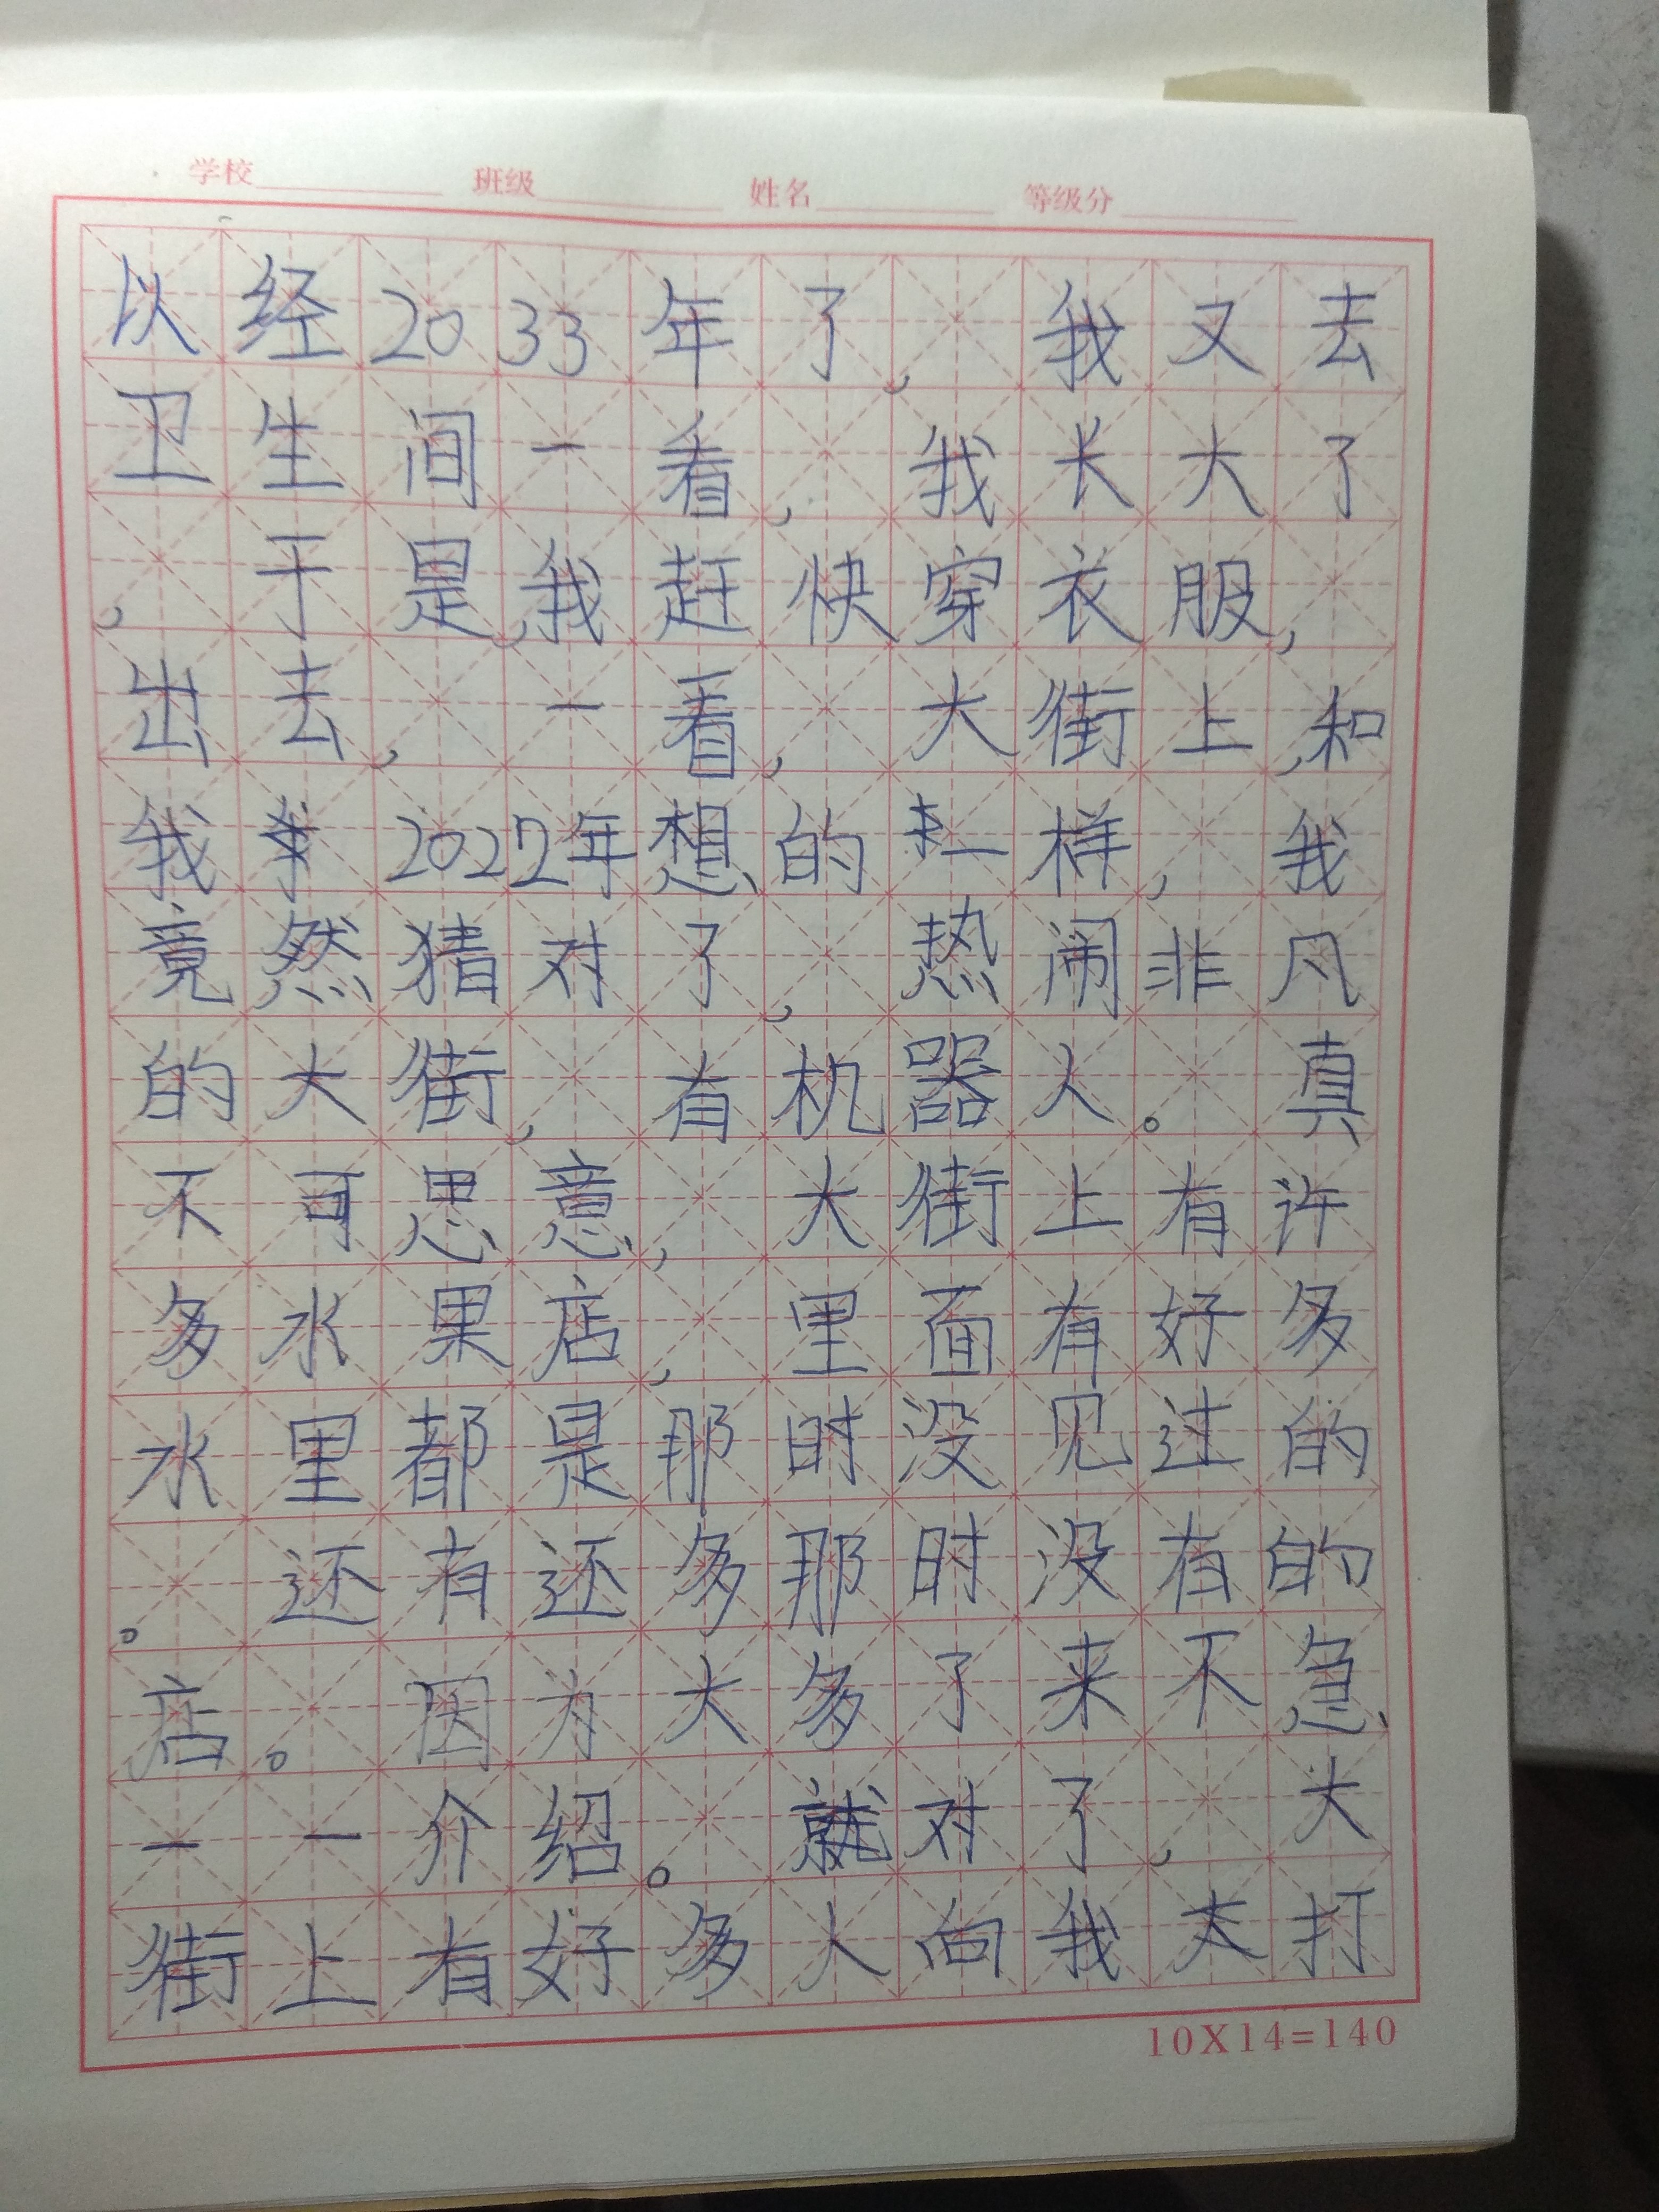 学校 班级 姓名 等级分
以经2033年了，我又去
卫生间一看，我长大了
，于是，我赶快穿衣服，
出去，一看，大街上，和
我2022年想的一样，我
竟然猜对了，热闹非风
的大街，有机器人。真
不可思意，大街上有许
多水果店，里面有好多
水里都是那时没见过的
。还有还多那时没有的
店。因为大多了来不急
一一介绍。就对了，大
街上有好多人向我打
10X14=140